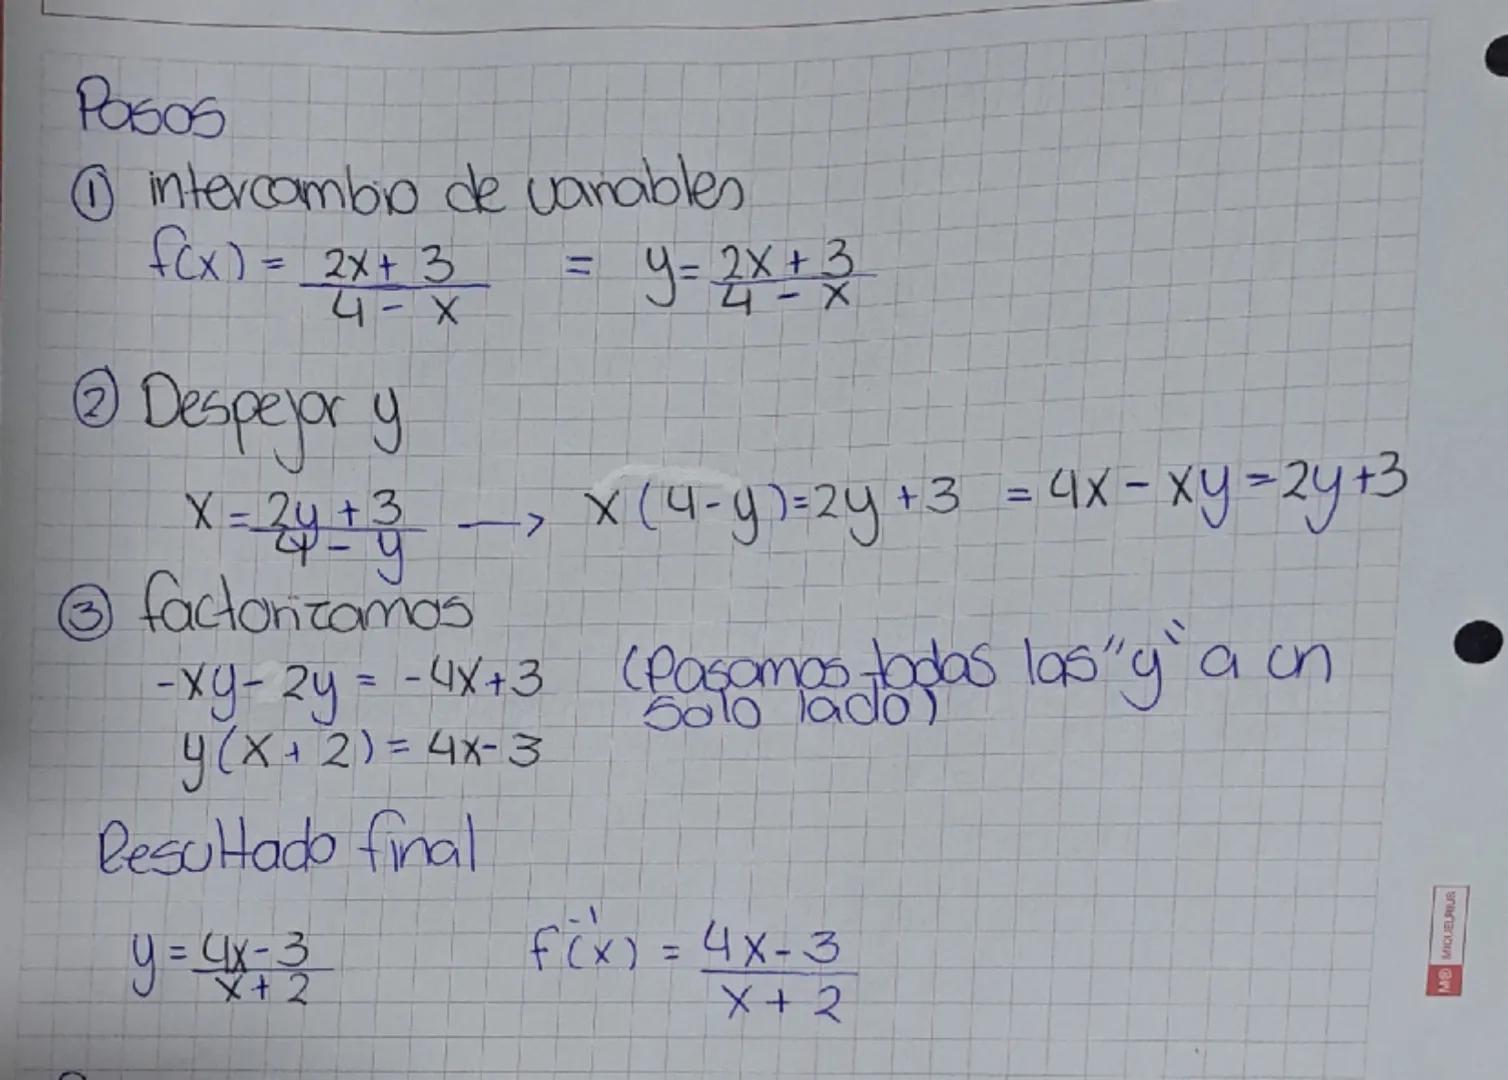 Pasos
① intercambio de variables
f(x) = 2x + 3 / 4 - x = y = 2x + 3 / 4 - x
② Despejar y
x = 2y + 3 / 4 - y → x(4-y)=2y+3 = 4x - xy = 2y+3
③ factorizamos
-xy - 2y = -4x+3 (Pasamos todas las "y" a un
solo lado)
y(x+2) = 4x-3
Resultado final
y = 4x-3 / x+2 f⁻¹(x) = 4x-3 / x+2
MIQUELRIUS